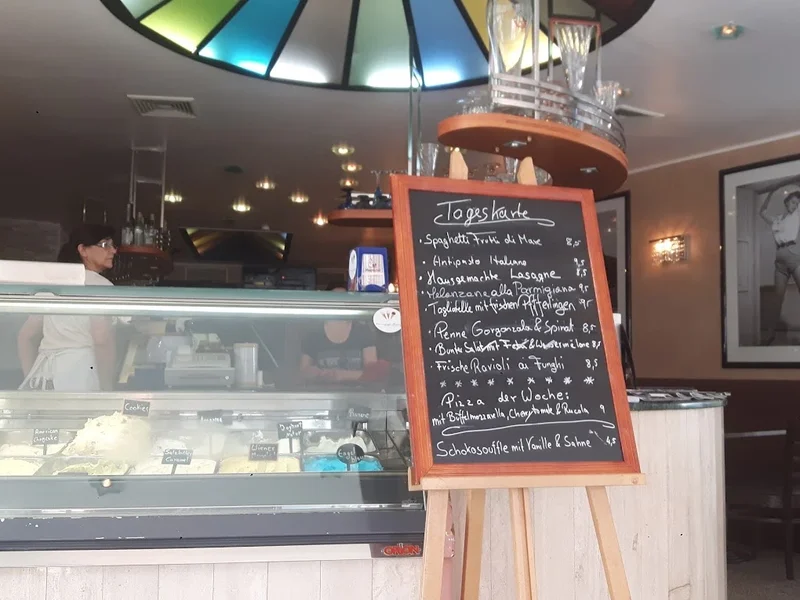 Tageskarte
Spaghetti Frutti di Mare 8,5
Antipasto Italiano 9,5
Hausgemachte Lasagne 8,5
Melanzane alla Parmigiana 9,5
Tagliatelle mit frischen Pfifferlingen 9,5
Penne Gorgonzola & Spinat 8,5
Bunte Salat mit Feta & Wassermelone 8,5
Frische Ravioli ai Funghi 8,5
Pizza der Woche:
mit Büffelmozzarella, Cherrytomate & Rucola 9
Schokosouffle mit Vanille & Sahne 4,5
Cookies
Joghurt
Salted Caramel
Engel